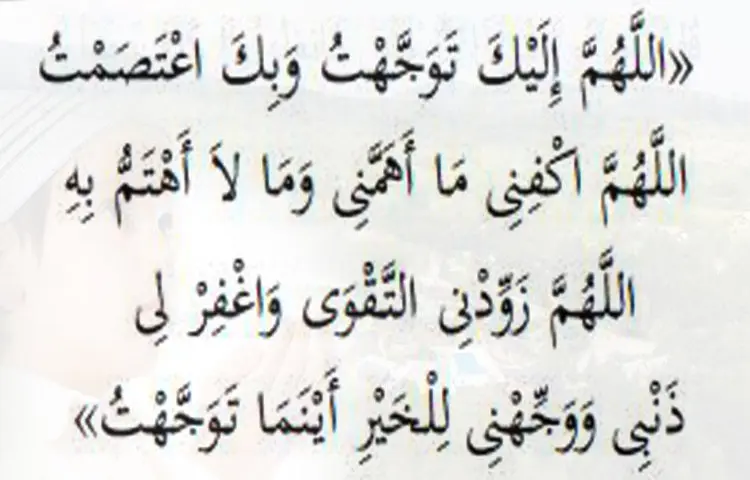 «اللَّهُمَّ إِلَيْكَ تَوَجَّهْتُ وَبِكَ اعْتَصَمْتُ
اللَّهُمَّ اكْفِنِى مَا أَهَمَّنِى وَمَا لاَ أَهْتَمُّ بِهِ
اللَّهُمَّ زَوِّدْنِى التَّقْوَى وَاغْفِرْ لِى
ذَنْبِى وَوَجِّهْنِى لِلْخَيْرِ أَيْنَمَا تَوَجَّهْتُ»